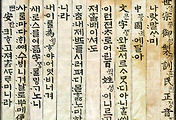 世宗御製訓民正音
나랏말ᄊᆞ미
文字와로서르ᄉᆞᄆᆞᆺ디아니
이런젼ᄎᆞ로어린百姓이니르고
져ᄒᆞᇙ배이셔도
ᄆᆞᄎᆞᆷ내제ᄠᅳ들시러펴디몯ᄒᆞᇙ노미하
니라
내이ᄅᆞᆯ為ᄒᆞ야어엿비너겨
새로스믈여듧字ᄅᆞᆯᄆᆡᇰᄀᆞ노니
사ᄅᆞᆷ마다ᄒᆡᅇᅧ수ᄫᅵ니겨날로ᄡᅮ메便
安킈ᄒᆞ고져ᄒᆞᇙᄯᆞᄅᆞ미니라